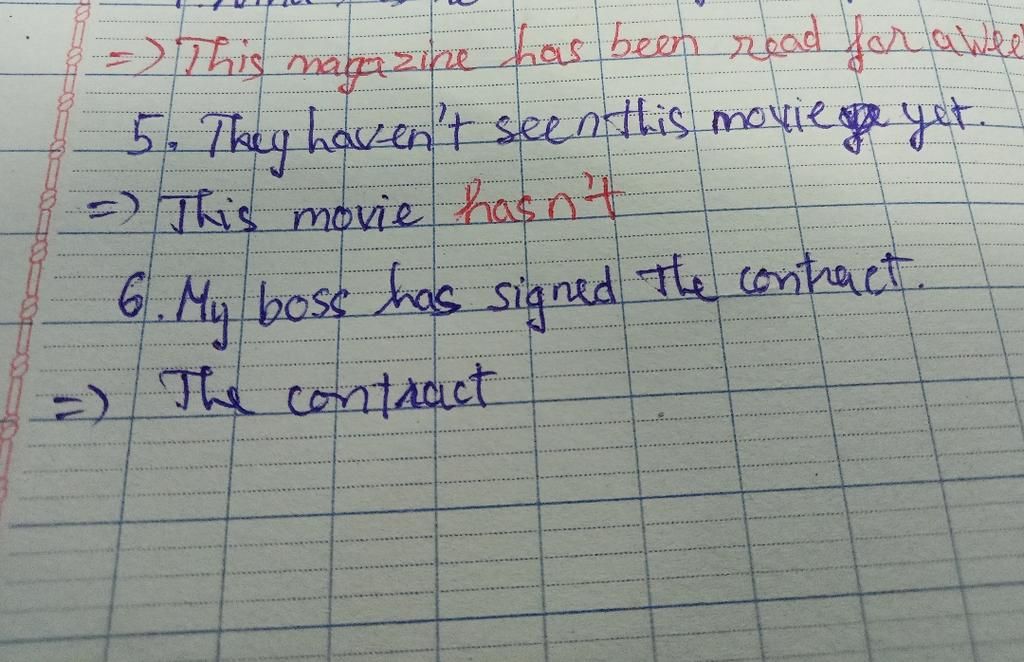 => This magazine has been read for a wee
5. They haven't seen this movie yet.
=> This movie hasn't
6. My boss has signed the contract.
=> The contract